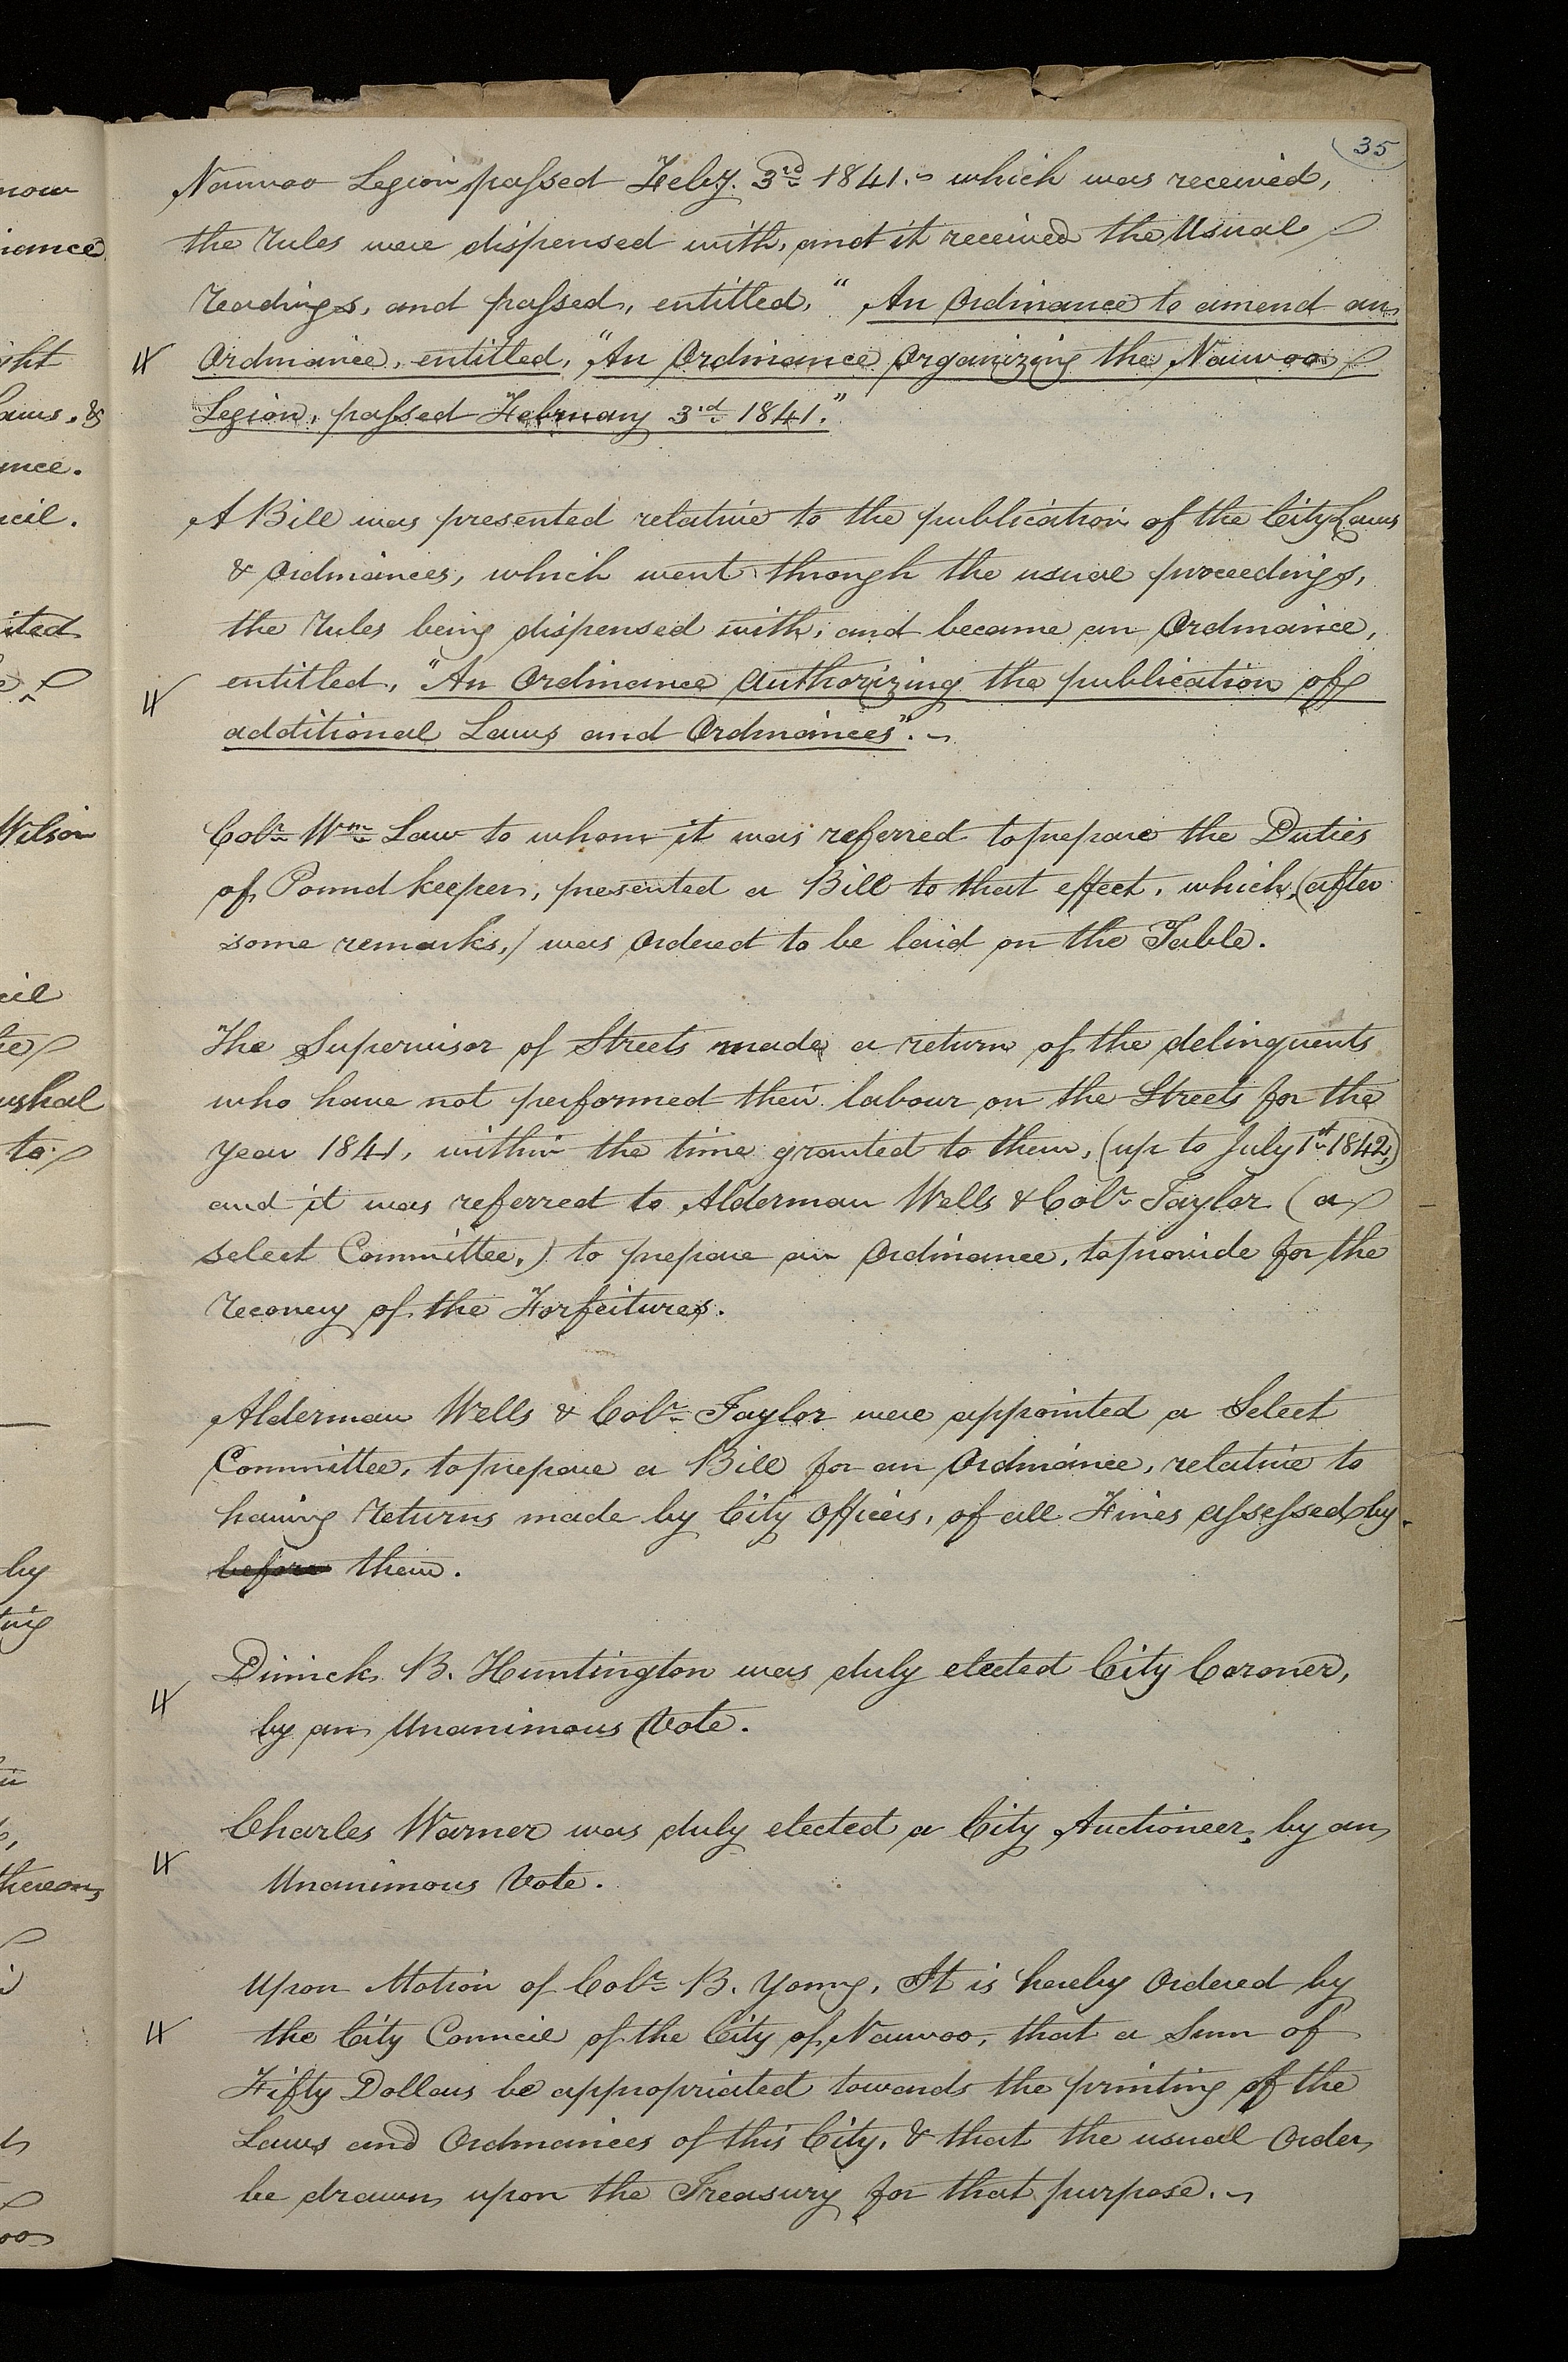 35
Nauvoo Legion" passed Feby. 3rd 1841.~ which was received,
the Rules were dispensed with, and it received the Usual
Readings, and passed, entitled, "An Ordinance to amend an
Ordinance, entitled, "An Ordinance Organizing the Nauvoo
Legion, passed February 3rd 1841."
A Bill was presented relative to the publication of the City Laws
& Ordinances, which went through the usual proceedings,
the Rules being dispensed with, and became an Ordinance,
entitled, "An Ordinance Authorizing the publication of
additional Laws and Ordinances".~
Colr. Wm. Law to whom it was referred to prepare the Duties
of Pound keeper, presented a Bill to that effect, which, (after
some remarks,) was Ordered to be laid on the Table.
The Supervisor of Streets made a return of the delinquents
who have not performed their labour on the Streets for the
Year 1841, within the time granted to them, (up to July 1st 1842,)
and it was referred to Alderman Wells & Colr. Taylor (a
select Committee,) to prepare an Ordinance, to provide for the
Recovery of the Forfeitures.
Alderman Wells & Colr. Taylor were appointed a Select
Committee, to prepare a Bill for an Ordinance, relative to
having Returns made by City Officers, of all Fines assessed by
before them.
Dimick B. Huntington was duly elected City Coroner,
by an Unanimous Vote.
Charles Warner was duly elected a City Auctioneer, by an
Unanimous Vote.
Upon Motion of Colr. B. Young, It is hereby Ordered by
the City Council of the City of Nauvoo, that a Sum of
Fifty Dollars be appropriated towards the printing of the
Laws and Ordinances of this City, & that the usual Order
be drawn upon the Treasury for that purpose.~